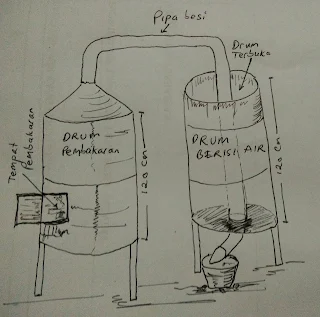 Pipa besi
Drum
Terbuka
Tempat
Pembakaran
DRUM
Pembakaran
120 Cm
DRUM
BERISI AIR
120 Cm